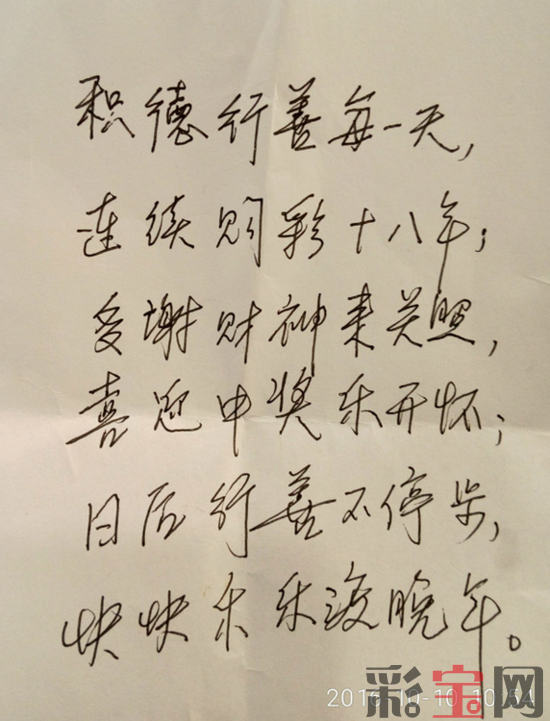 积德行善每一天，
连续购彩十八年；
多谢财神来关照，
喜迎中奖乐开怀；
日后行善不停步，
快快乐乐渡晚年。
彩宝网
2016-10-10 10:54